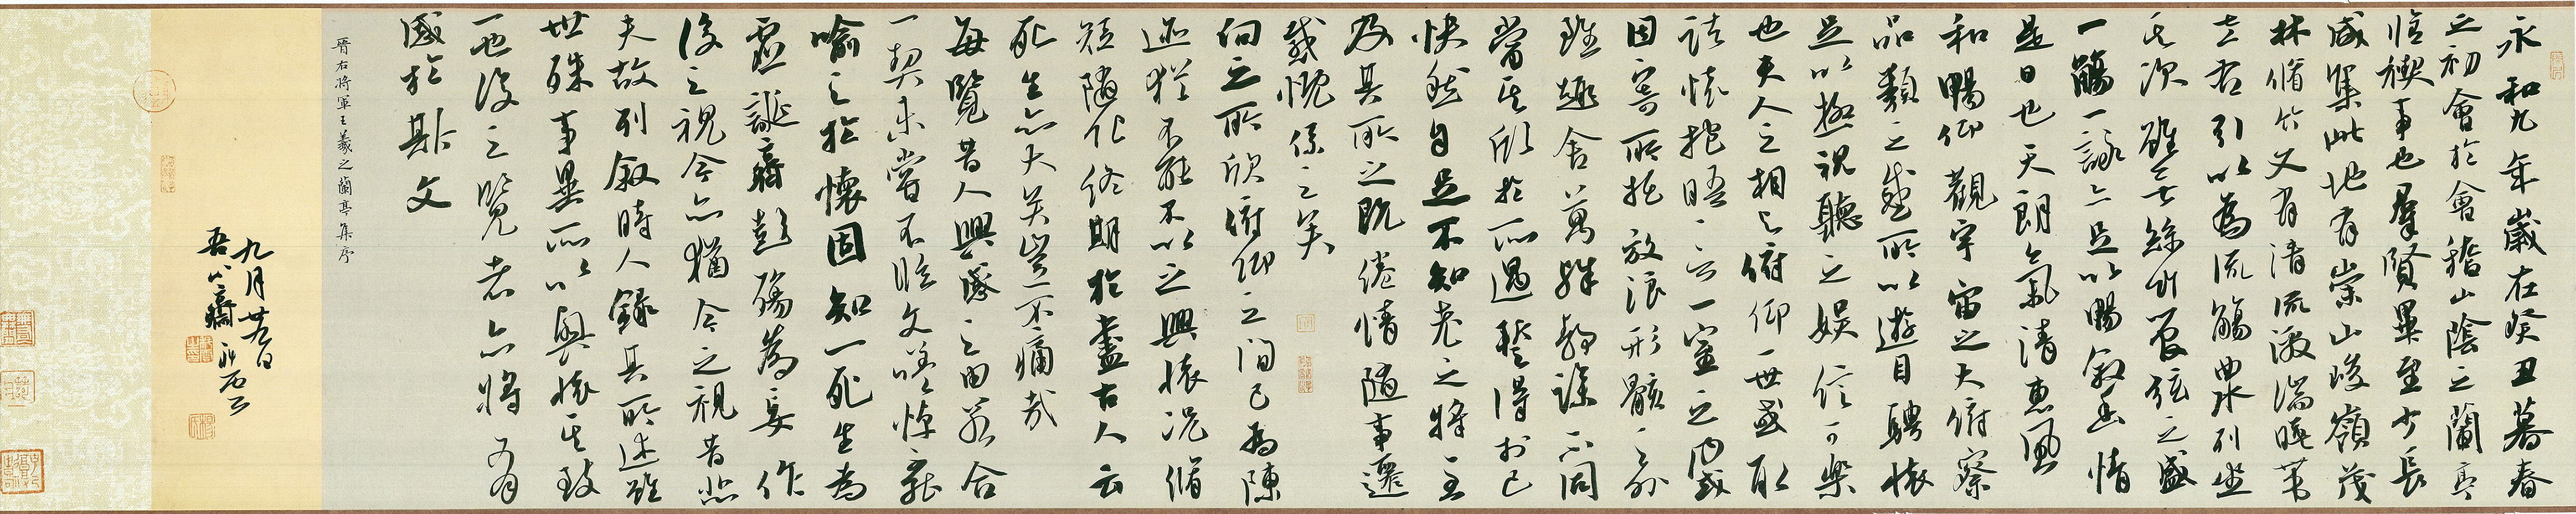 永和九年歲在癸丑暮春
之初會於會稽山陰之蘭亭
脩禊事也羣賢畢至少長
咸集此地有崇山峻嶺茂
林脩竹又有清流激湍暎帶
左右引以為流觴曲水列坐
其次雖無絲竹管弦之盛
一觴一詠亦足以暢敘幽情
是日也天朗氣清惠風
和暢仰觀宇宙之大俯察
品類之盛所以遊目騁懷
足以極視聽之娛信可樂
也夫人之相與俯仰一世或取
諸懷抱晤言一室之內或
因寄所託放浪形骸之外
雖趣舍萬殊靜躁不同
當其欣於所遇暫得於己
快然自足不知老之將至
及其所之既倦情隨事遷
感慨係之矣
向之所欣俯仰之間已為陳
迹猶不能不以之興懷況脩
短隨化終期於盡古人云
死生亦大矣豈不痛哉
每覽昔人興感之由若合
一契未嘗不臨文嗟悼不能
喻之於懷固知一死生為
虛誕齊彭殤為妄作
後之視今亦猶今之視昔悲
夫故列敘時人錄其所述雖
世殊事異所以興懷其致
一也後之覽者亦將又有
感於斯文
晉右將軍王羲之蘭亭集序
九月廿日
齋